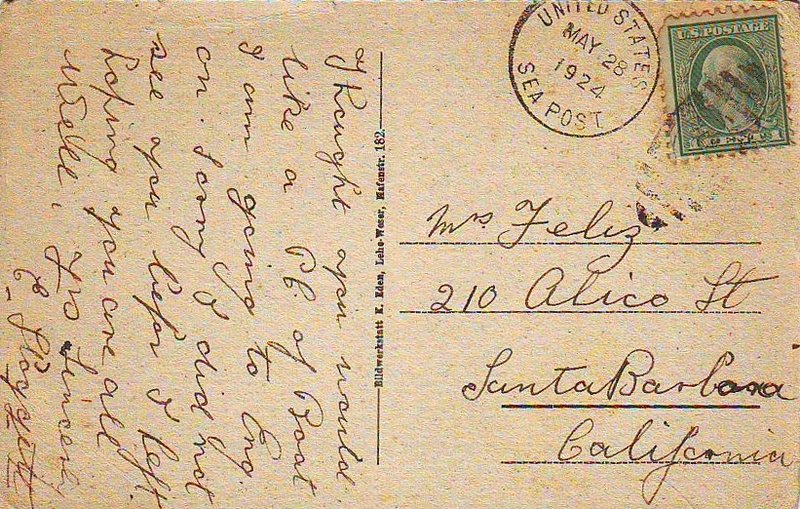 Thought you would
like a P.C. of Boat
I am going to Eng
on. Sorry I did not
see you befor I left.
hoping you are all
Well. Yrs Sincerly
E.
Bildwerkstatt K. Eden, Lehe-Weser, Hafenstr. 182.
UNITED STATES
MAY 28
1924
SEA POST
U.S. POSTAGE
1 CENT 1
Mrs Feliz
210 Alico St
Santa Barbara
California